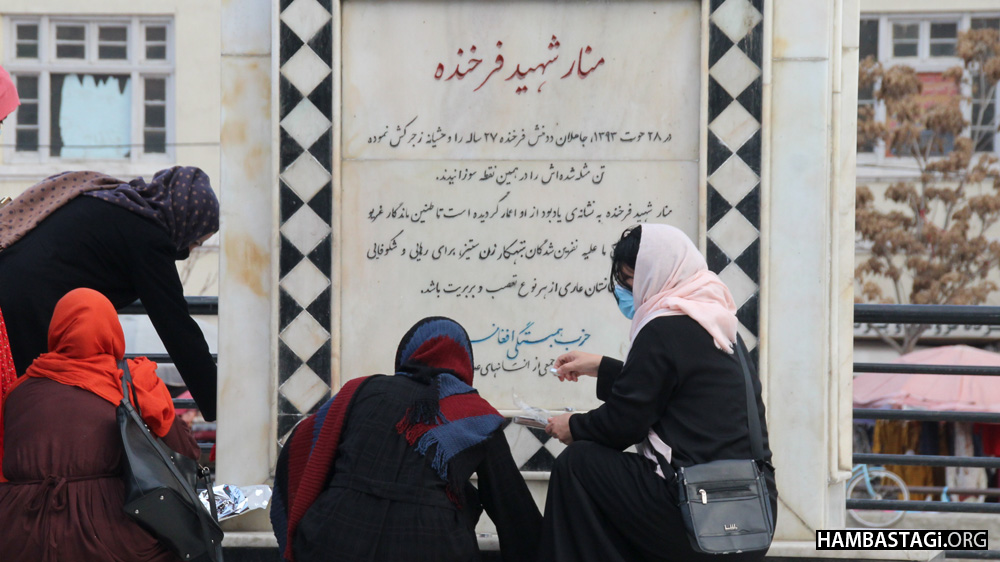 منار شهید فرخنده
در ۲۸ حوت ۱۳۹۳، جاهلان ددمنش فرخنده ۲۷ ساله را وحشیانه زجرکش نموده
تن مثله شده‌اش را در همین نقطه سوزانیدند.
منار شهید فرخنده به نشانه‌ی یادبود از او اعمار گردیده است تا طنین ماندگار غریو
با علیه نفرین شدگان تبهکار زن ستیز، برای رهایی و شکوفایی
عاری از هر نوع تعصب و بربریت باشد.
حزب همبستگی افغا
جمعی از انسانهای
HAMBASTAGI.ORG